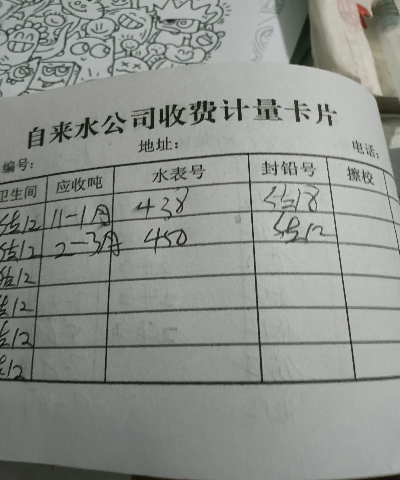 自来水公司收费计量卡片
编号: 地址: 电话:
卫生间 应收吨 水表号 封铅号 擦校
估12 11-1月 438 估18
估12 2-3月 450 估12
估12
估12
估12
估12